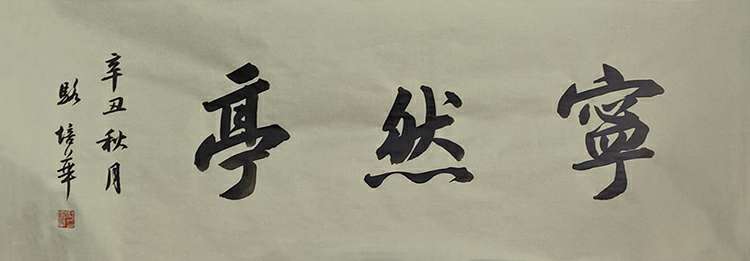 寧然亭
辛丑秋月
駱培華